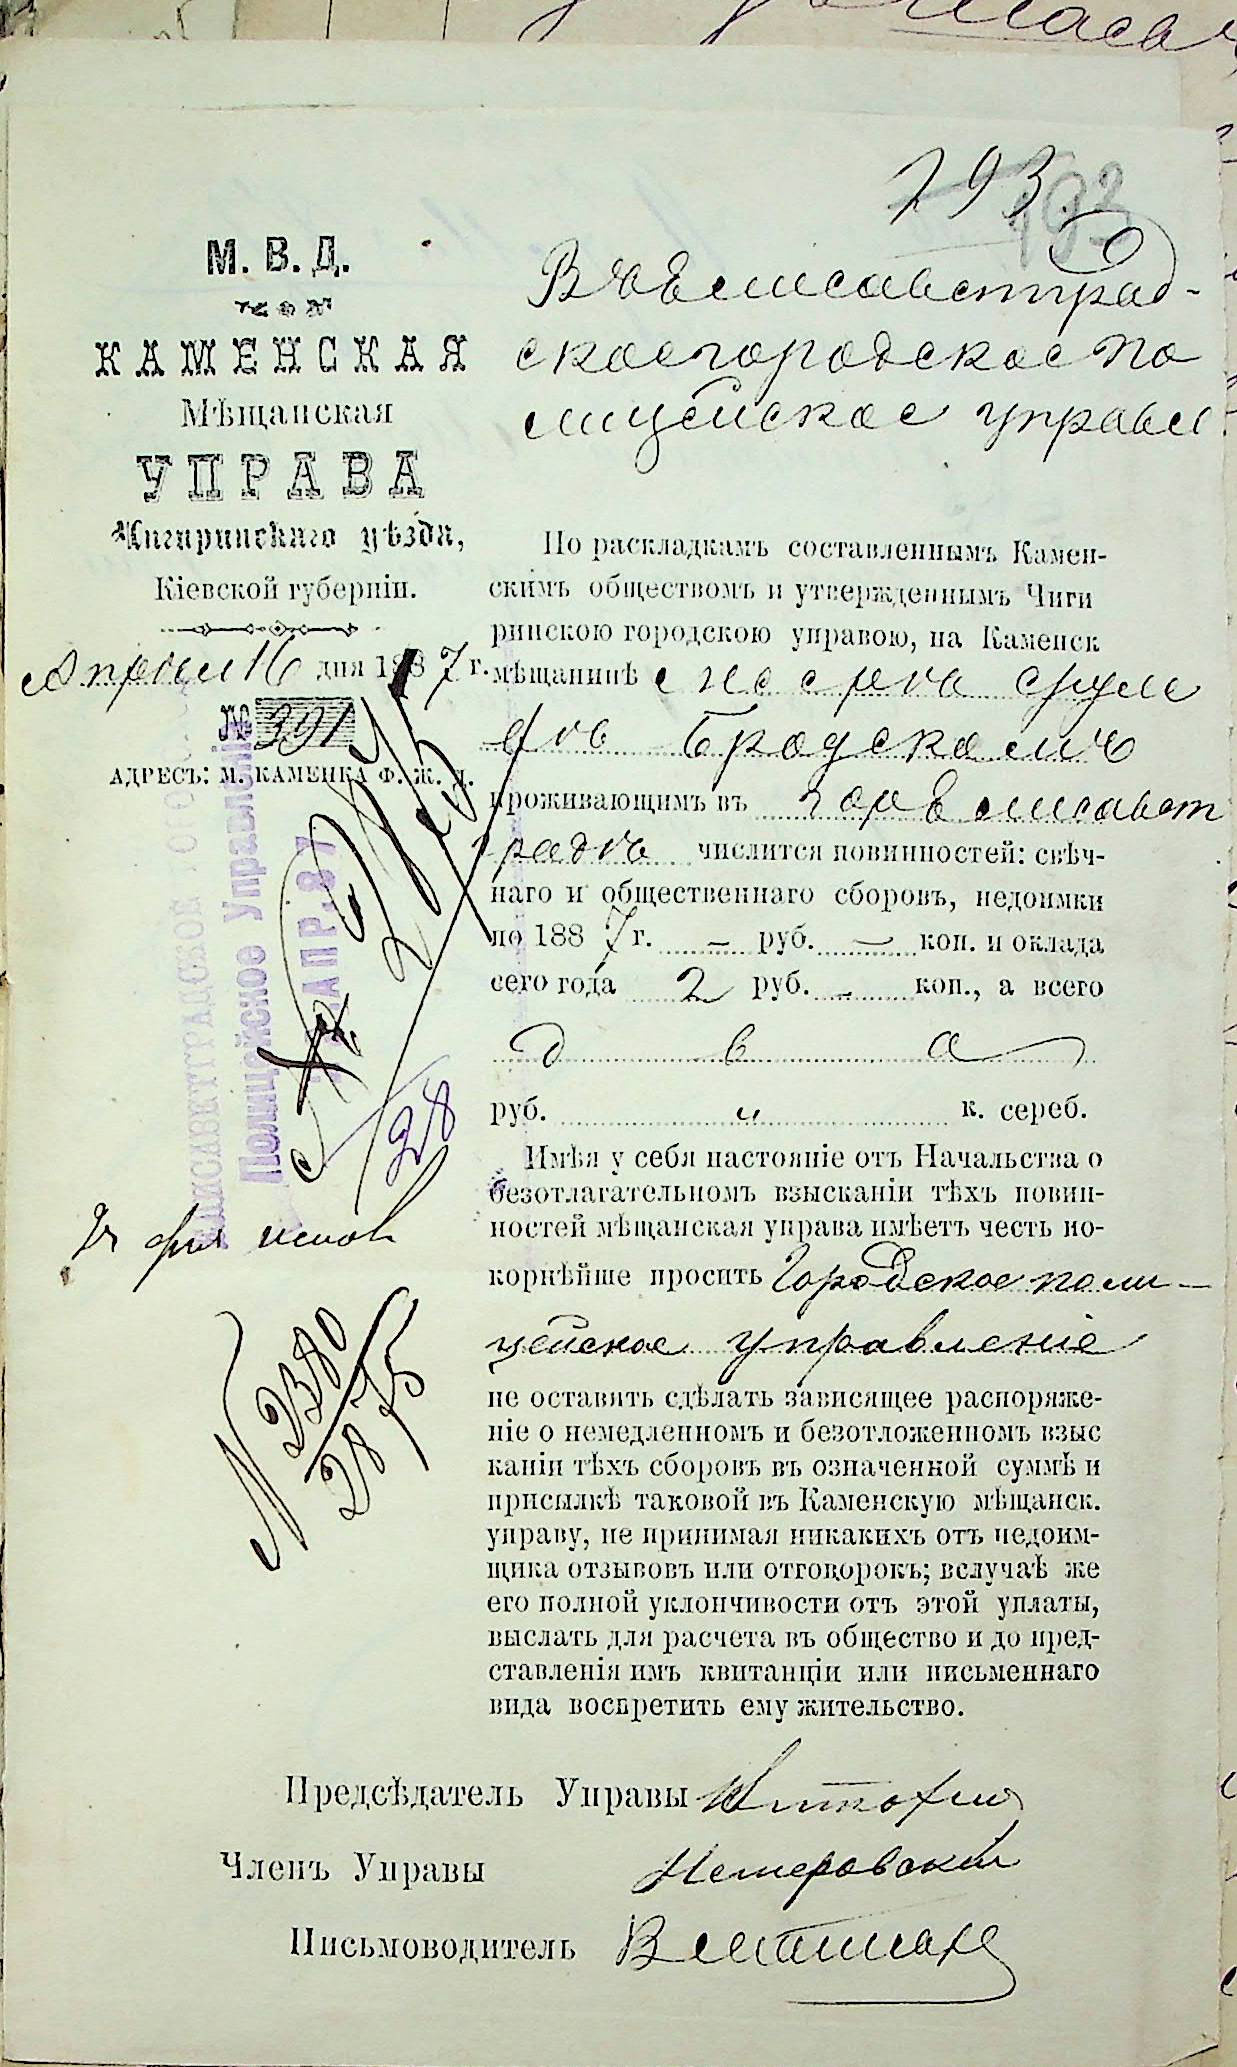 293
193
М. В. Д.
КАМЕНСКАЯ
Мѣщанская
УПРАВА
Чигиринскаго уѣзда,
Кіевской губерніи.
Апреля 16 дня 1887 г.
№ 391
АДРЕСЪ: М. КАМЕНКА Ф. Ж. Д.
ЕЛИСАВЕТГРАДСКОЕ
Полицейское Управленіе
АПР. 87
28
№ 2380
28
Въ Елисаветград-
ское городское по
лицейское управл
По раскладкамъ составленнымъ Камен-
скимъ обществомъ и утвержденнымъ Чиги
ринскою городскою управою, на Каменск
мѣщанинѣ
Бродскомъ
проживающимъ въ гор Елисавет
градѣ числится повинностей: свѣч-
наго и общественнаго сборовъ, недоимки
по 1887 г. – руб. – коп. и оклада
сего года 2 руб. - коп., а всего
два
руб. „ к. сереб.
Имѣя у себя настояніе отъ Начальства о
безотлагательномъ взысканіи тѣхъ повин-
ностей мѣщанская управа имѣетъ честь по-
корнѣйше просить Городское поли-
цейское управленіе
не оставить сдѣлать зависящее распоряже-
ніе о немедленномъ и безотложенномъ взыс
каніи тѣхъ сборовъ въ означенной суммѣ и
присылкѣ таковой въ Каменскую мѣщанск.
управу, не принимая никакихъ отъ недоим-
щика отзывовъ или отговорокъ; вслучаѣ же
его полной уклончивости отъ этой уплаты,
выслать для расчета въ общество и до пред-
ставленія имъ квитанціи или письменнаго
вида воспретить ему жительство.
Предсѣдатель Управы
Членъ Управы
Письмоводитель